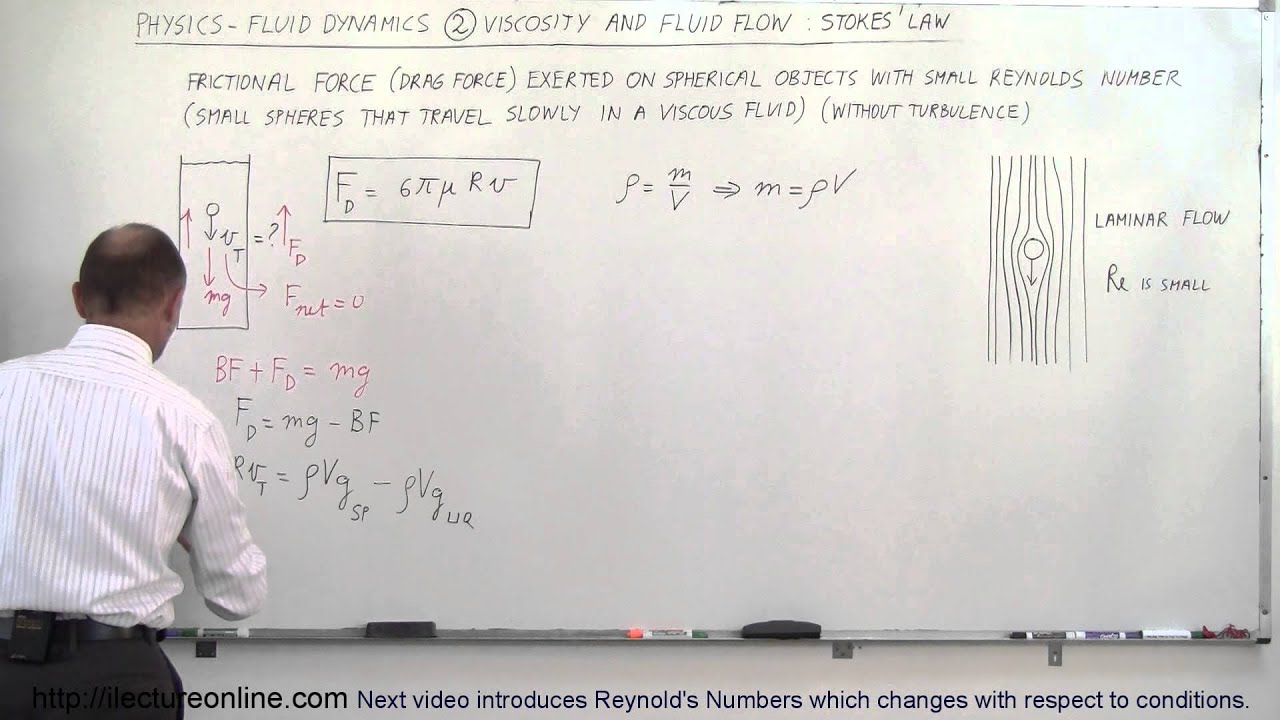 PHYSICS - FLUID DYNAMICS ② VISCOSITY AND FLUID FLOW : STOKES' LAW
FRICTIONAL FORCE (DRAG FORCE) EXERTED ON SPHERICAL OBJECTS WITH SMALL REYNOLDS NUMBER
(SMALL SPHERES THAT TRAVEL SLOWLY IN A VISCOUS FLUID) (WITHOUT TURBULENCE)
F_D = 6πμRv
ρ = m/V ⇒ m = ρV
v_T = ?
F_D
mg
F_net = 0
BF + F_D = mg
F_D = mg - BF
Rv_T = ρVg_SP - ρVg_LIQ
LAMINAR FLOW
Re IS SMALL
http://ilectureonline.com Next video introduces Reynold's Numbers which changes with respect to conditions.